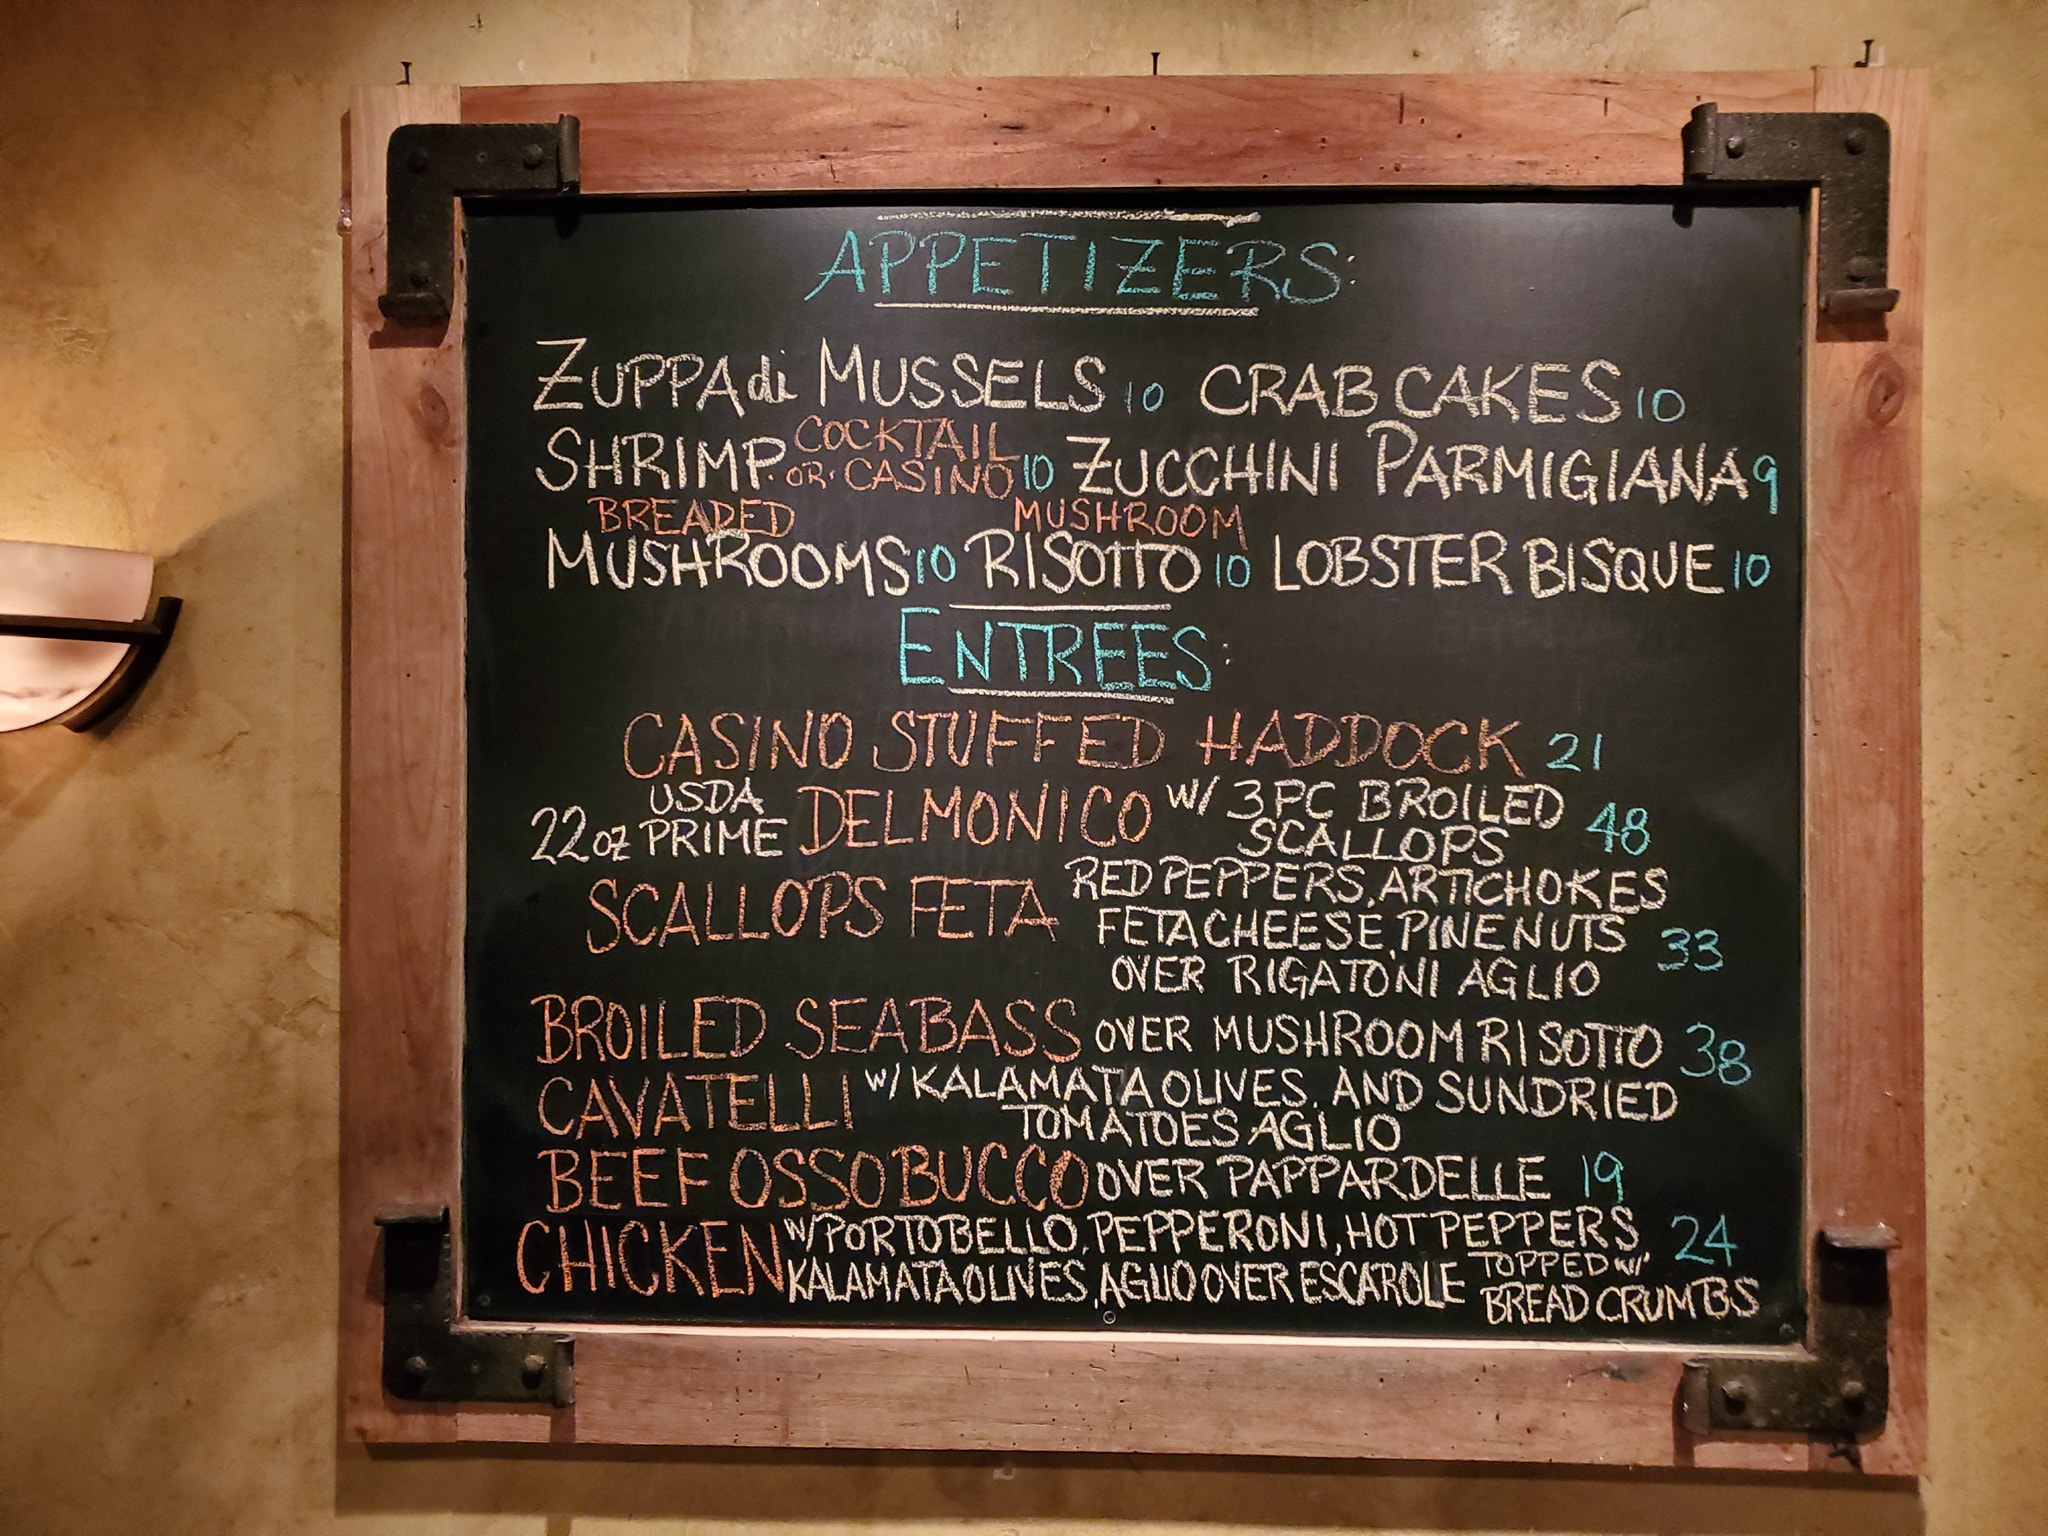 APPETIZERS:
ZUPPA di MUSSELS 10 CRAB CAKES 10
SHRIMP COCKTAIL OR CASINO 10 ZUCCHINI PARMIGIANA 9
BREADED MUSHROOMS 10 MUSHROOM RISOTTO 10 LOBSTER BISQUE 10
ENTREES:
CASINO STUFFED HADDOCK 21
22oz USDA PRIME DELMONICO w/ 3PC BROILED SCALLOPS 48
SCALLOPS FETA RED PEPPERS, ARTICHOKES
FETA CHEESE, PINENUTS 33
OVER RIGATONI AGLIO
BROILED SEABASS OVER MUSHROOM RISOTTO 38
CAVATELLI w/ KALAMATA OLIVES, AND SUNDRIED
TOMATOES AGLIO
BEEF OSSO BUCCO OVER PAPPARDELLE 19
CHICKEN w/ PORTOBELLO, PEPPERONI, HOT PEPPERS 24
KALAMATA OLIVES, AGLIO OVER ESCAROLE TOPPED w/ BREAD CRUMBS